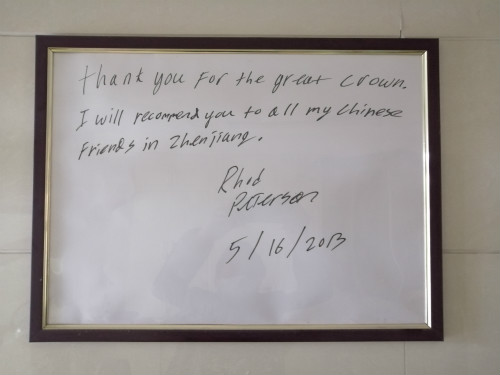 Thank you For the great Crown.
I will recommend you to all my Chinese
Friends in Zhenjiang.
Rhod
Peterson
5/16/2013